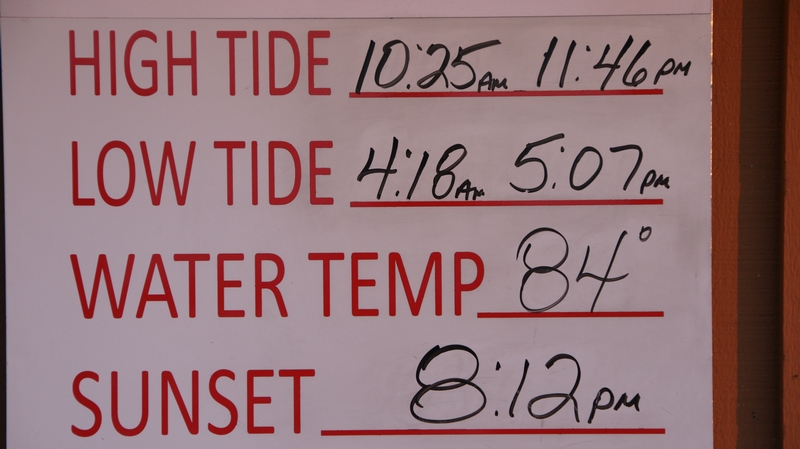 HIGH TIDE 10:25AM 11:46PM
LOW TIDE 4:18AM 5:07PM
WATER TEMP 84°
SUNSET 8:12PM